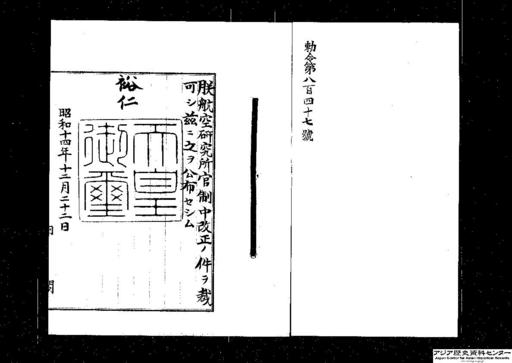 勅令第八百四十七號
朕航空研究所官制中改正ノ件ヲ裁
可シ茲ニ之ヲ公布セシム
裕仁
天皇御璽
昭和十四年十二月二十二日
内閣
アジア歴史資料センター
Japan Center for Asian Historical Records